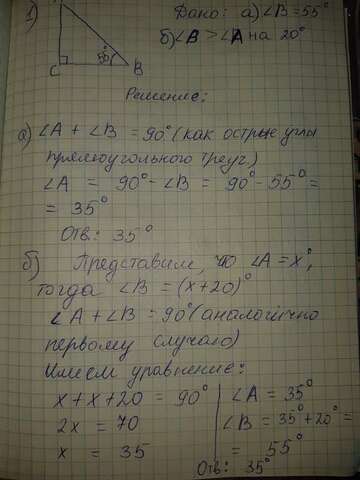 1) Дано: а) ∠B = 55°
C 55° B
б) ∠B > ∠A на 20°
Решение:
а) ∠A + ∠B = 90° (как острые углы
прямоугольного треуг)
∠A = 90° - ∠B = 90° - 55° =
= 35°
Отв: 35°
б) Представим, что ∠A = x°,
тогда ∠B = (x+20)°
∠A + ∠B = 90° (аналогично
первому случаю)
Имеем уравнение:
x + x + 20 = 90°
2x = 70
x = 35
∠A = 35°
∠B = 35° + 20° =
= 55°
Отв: 35°